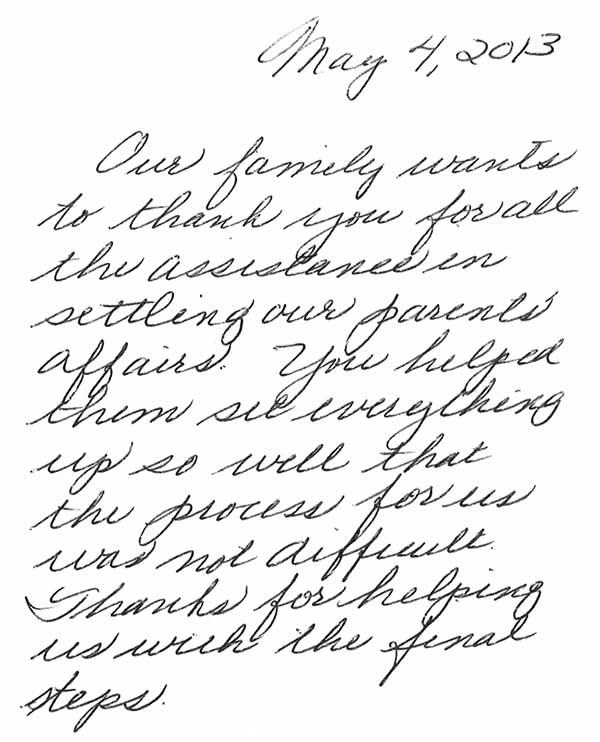 May 4, 2013
Our family wants
to thank you for all
the assistance in
settling our parents'
affairs. You helped
them set everything
up so well that
the process for us
was not difficult.
Thanks for helping
us with the final
steps.